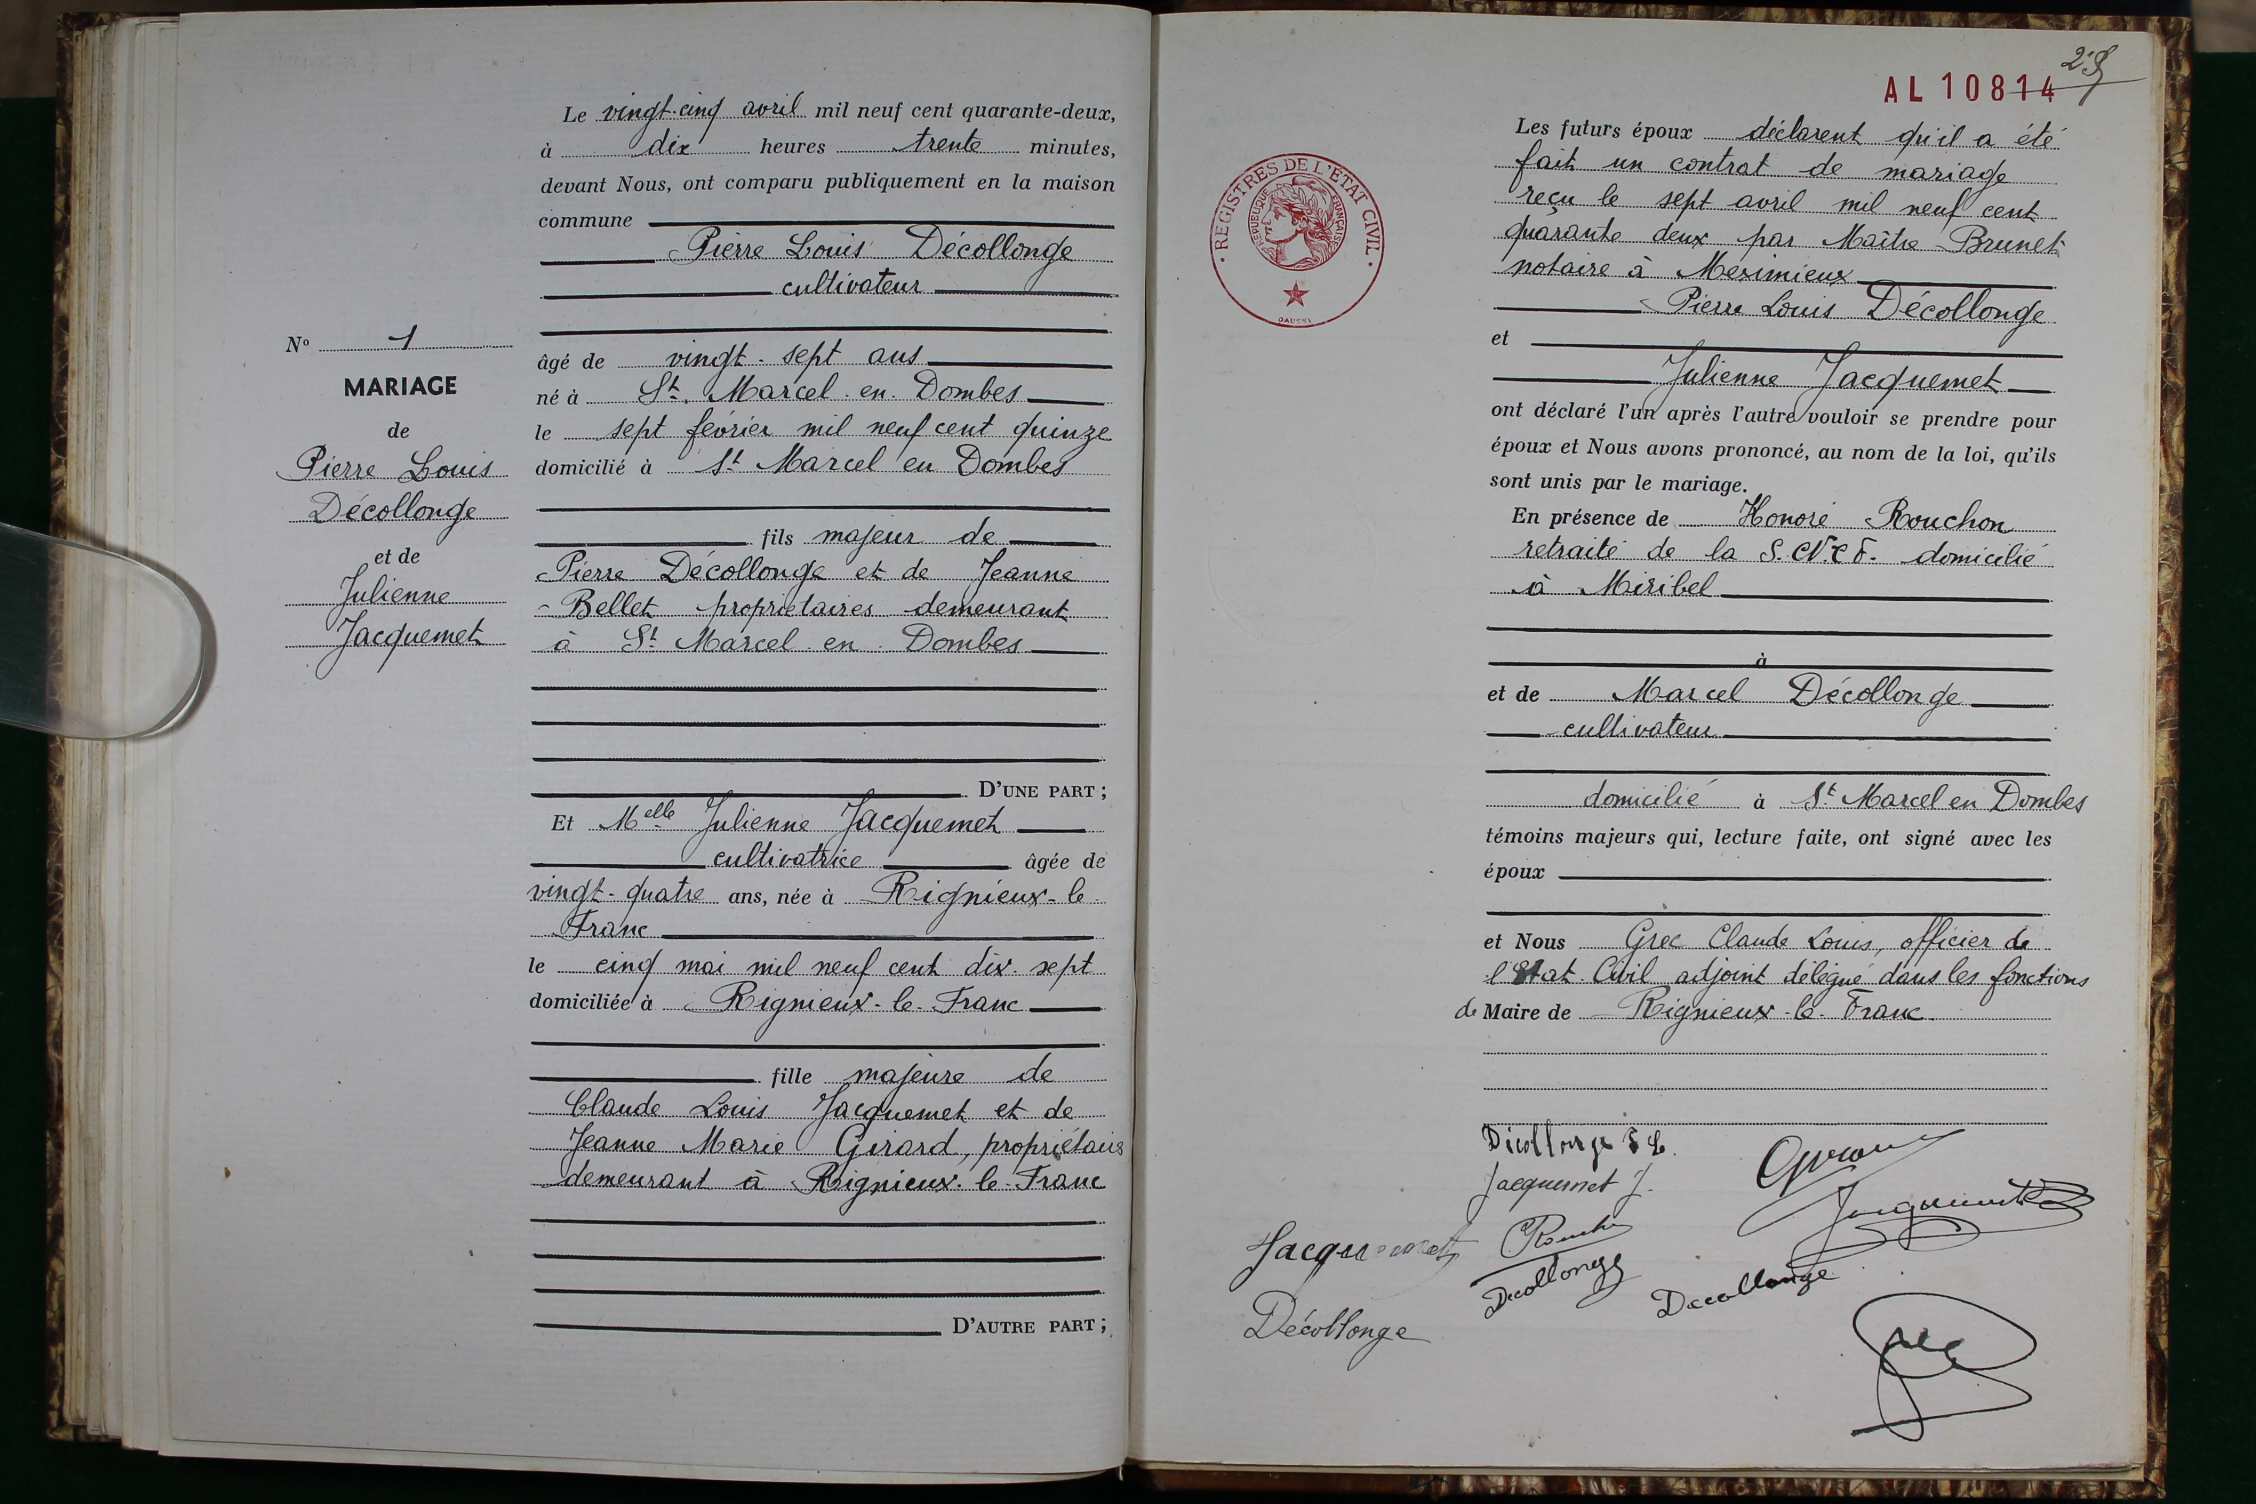 Le vingt-cinq avril mil neuf cent quarante-deux,
à dix heures trente minutes,
devant Nous, ont comparu publiquement en la maison
commune
Pierre Louis Décollonge
cultivateur
âgé de vingt-sept ans
né à St. Marcel-en-Dombes
le sept février mil neuf cent quinze
domicilié à St Marcel en Dombes
fils majeur de
Pierre Décollonge et de Jeanne
Bellet propriétaires demeurant
à St Marcel-en-Dombes
D'UNE PART ;
Et Melle Julienne Jacquemet
cultivatrice âgée de
vingt-quatre ans, née à Rignieux-le
Franc
le cinq mai mil neuf cent dix-sept
domiciliée à Rignieux-le-Franc
fille majeure de
Claude Louis Jacquemet et de
Jeanne Marie Girard, propriétaires
demeurant à Rignieux-le-Franc
D'AUTRE PART ;
No 1
MARIAGE
de
Pierre Louis
Décollonge
et de
Julienne
Jacquemet
AL 10814
REGISTRES DE L'ÉTAT CIVIL
RÉPUBLIQUE FRANÇAISE
Les futurs époux déclarent qu'il a été
fait un contrat de mariage
reçu le sept avril mil neuf cent
quarante deux par Maître Brunet
notaire à Meximieux
Pierre Louis Décollonge
et
Julienne Jacquemet
ont déclaré l'un après l'autre vouloir se prendre pour
époux et Nous avons prononcé, au nom de la loi, qu'ils
sont unis par le mariage.
En présence de Honoré Rouchon
retraité de la S.N.C.F. domicilié
à Miribel
à
et de Marcel Décollonge
cultivateur
domicilié à St Marcel en Dombes
témoins majeurs qui, lecture faite, ont signé avec les
époux
et Nous Grec Claude Louis, officier de
l'Etat-Civil adjoint délégué dans les fonctions
de Maire de Rignieux-le-Franc
Décollonge
Jacquemet J.
Jacquemet
Jacquemet
Decollonge
Decollonge
Décollonge
Grec